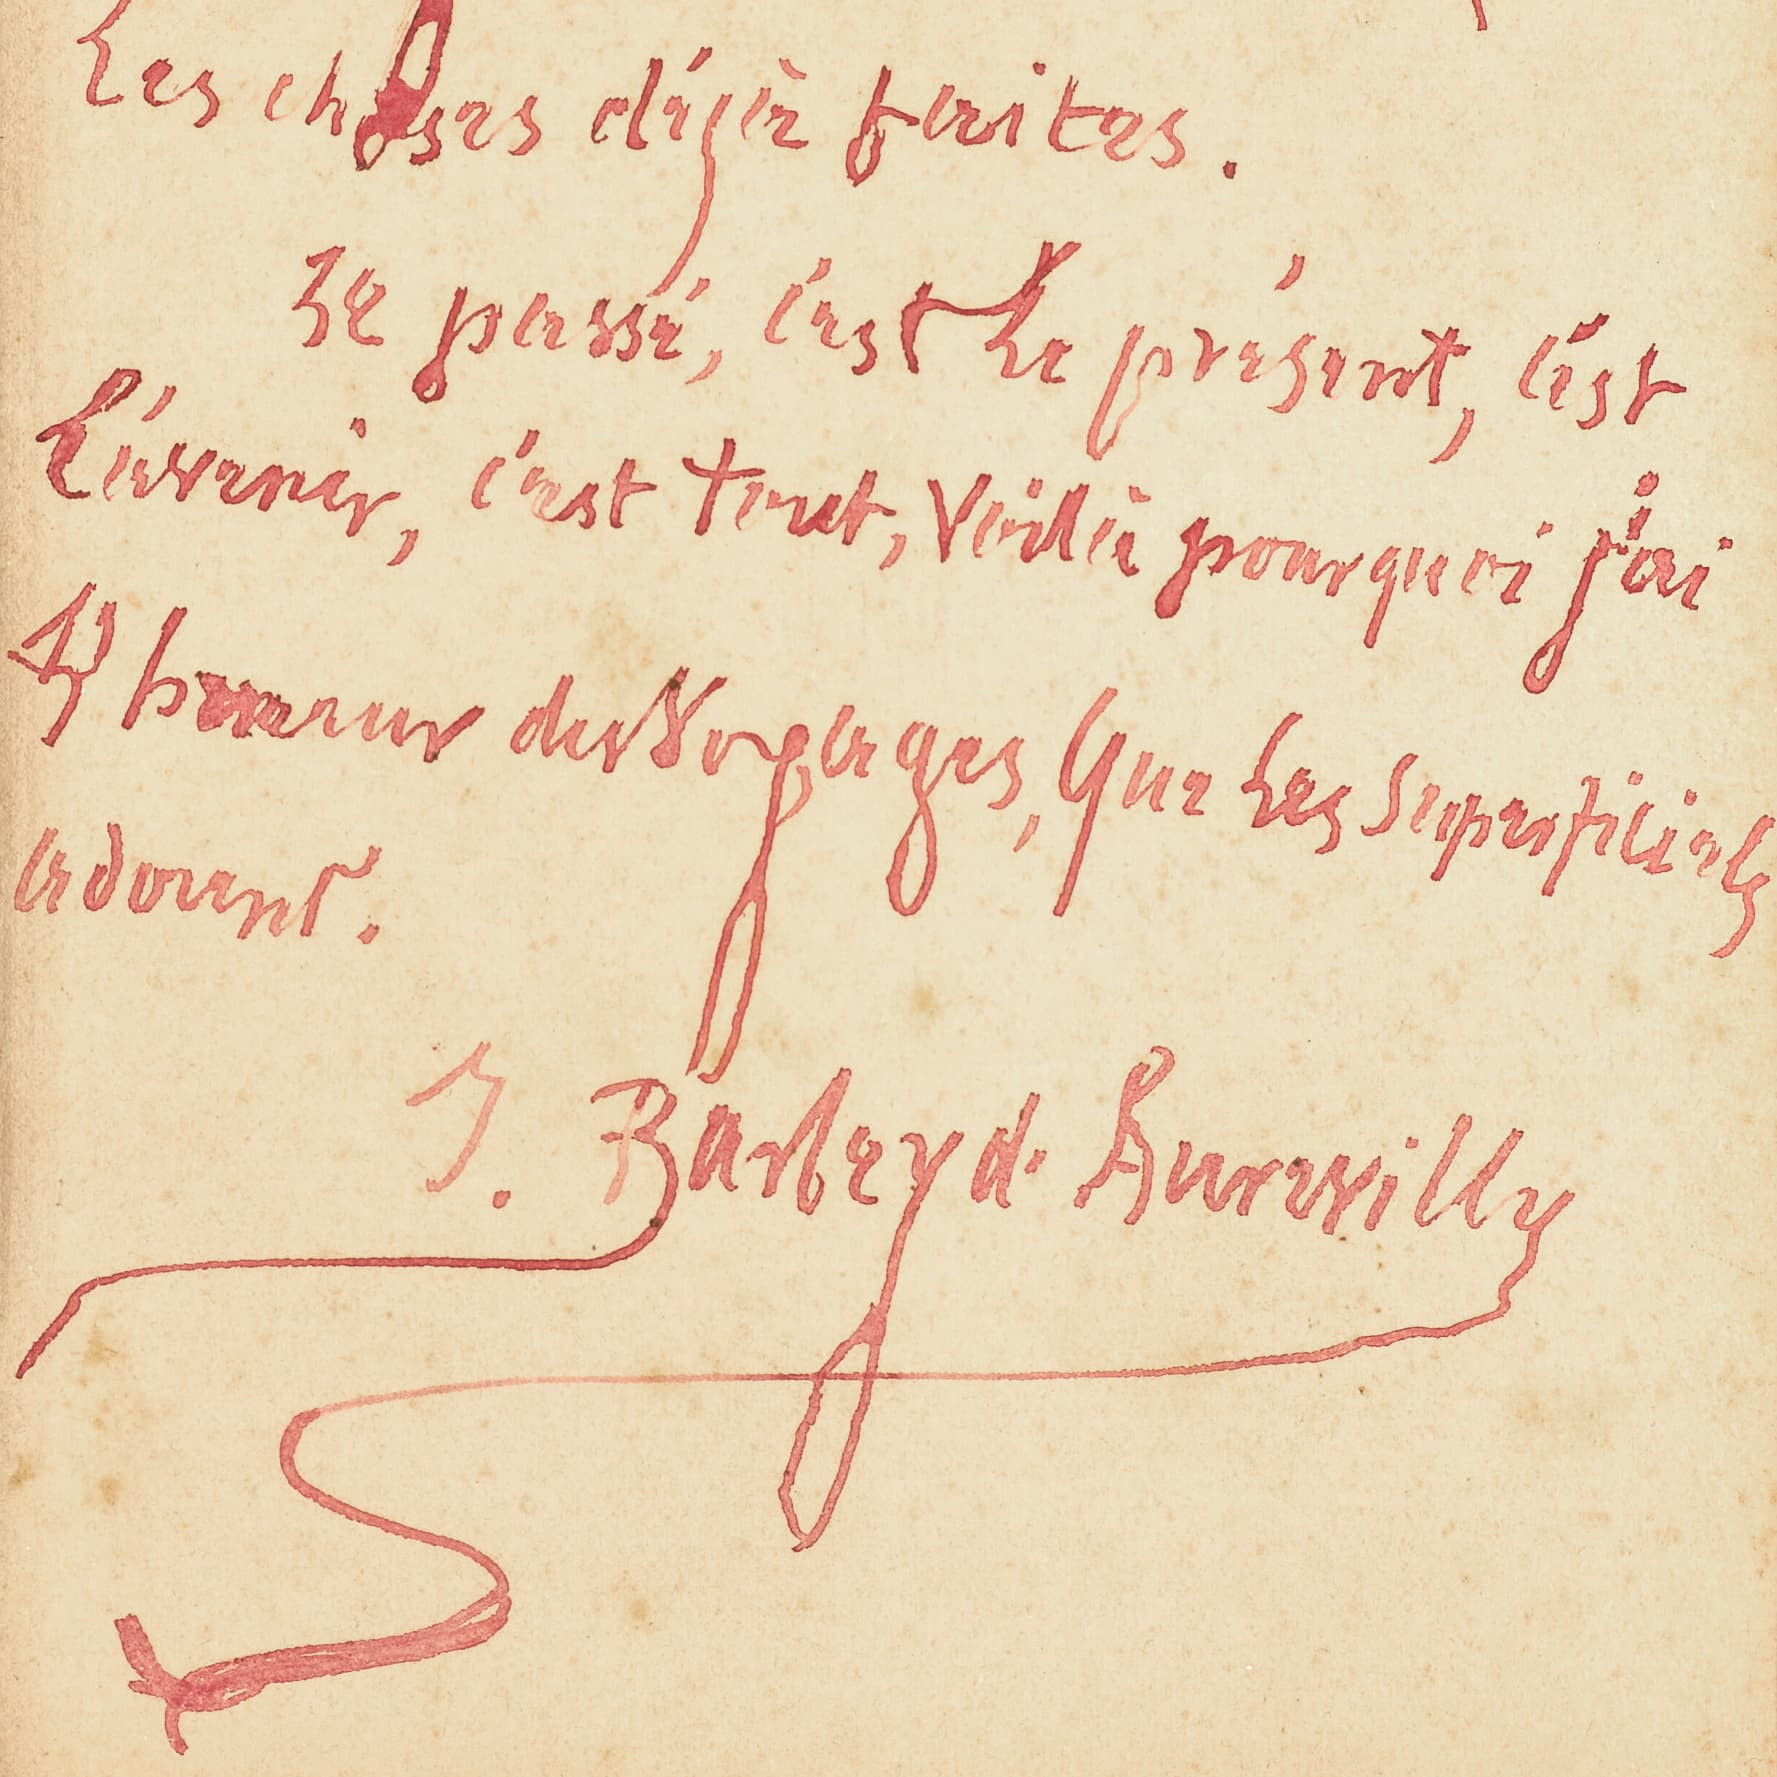 Les choses déjà faites.
Le passé, c'est Le présent, c'est
L'avenir, c'est tout, Voilà pourquoi j'ai
L'horreur des Voyages, Que Les Superficiels
adorent.
J. Barbey d'Aurevilly